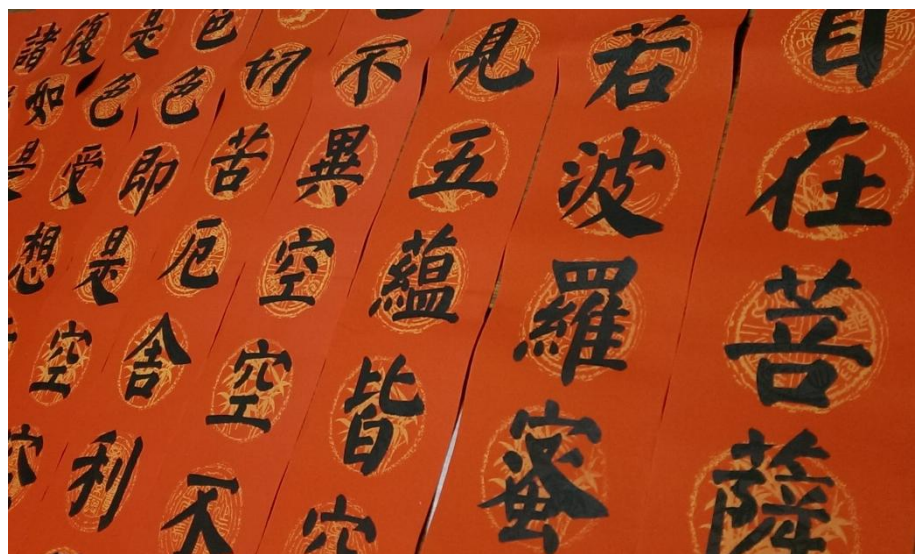 自在菩薩
若波羅蜜
見五蘊皆空
不異空空不
切苦厄舍利
色色即是空
是色受想
復如是
諸